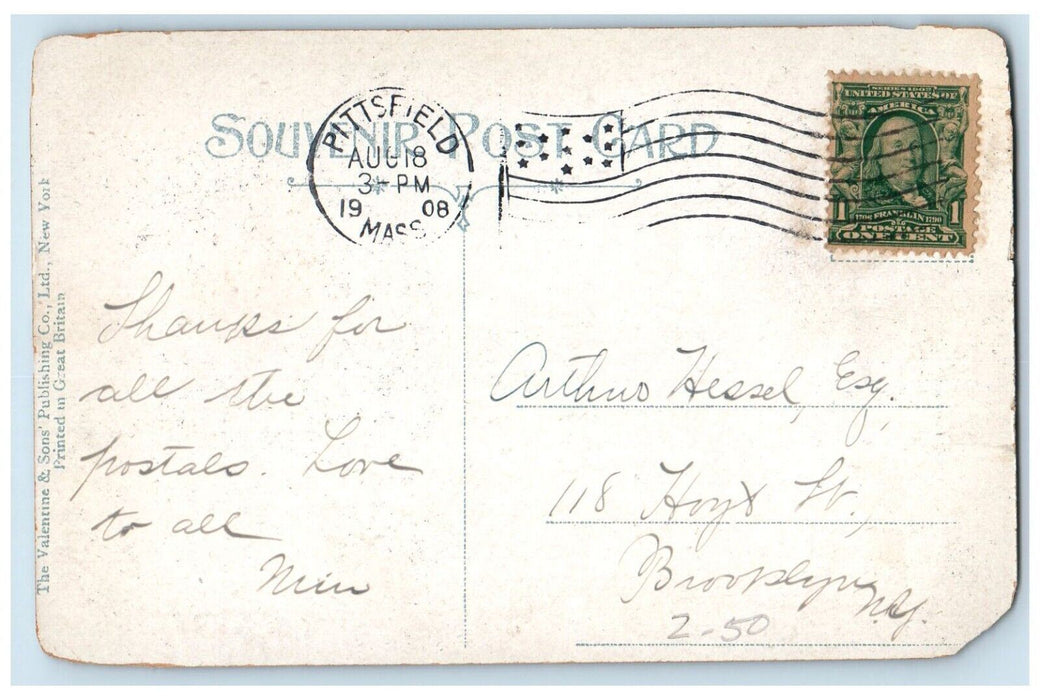 SOUVENIR POST CARD
PITTSFIELD
AUG 18
3 - PM
19 08
MASS.
SERIES 1902
UNITED STATES OF
AMERICA
1 1706 FRANKLIN 1790 1
POSTAGE
ONE CENT
The Valentine & Sons' Publishing Co., Ltd., New York
Printed in Great Britain
Thanks for
all the
postals. Love
to all
Min
Arthur Hessel, Esq.,
118 Hoyt St.,
Brooklyn
N.Y.
2-50